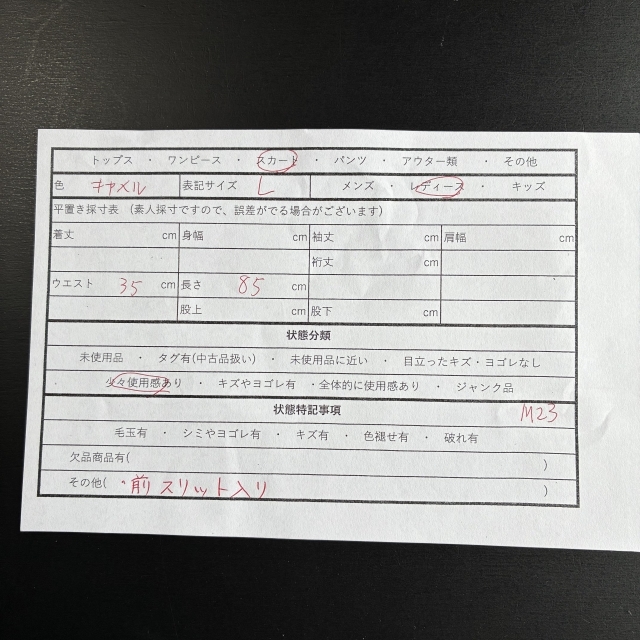 トップス ・ ワンピース ・ スカート ・ パンツ ・ アウター類 ・ その他
色 キャメル 表記サイズ L メンズ ・ レディース ・ キッズ
平置き採寸表 (素人採寸ですので、誤差がでる場合がございます)
着丈 cm 身幅 cm 袖丈 cm 肩幅 cm
裄丈 cm
ウエスト 35 cm 長さ 85 cm
股上 cm 股下 cm
状態分類
未使用品 ・ タグ有(中古品扱い) ・ 未使用品に近い ・ 目立ったキズ・ヨゴレなし
少々使用感あり ・ キズやヨゴレ有 ・全体的に使用感あり ・ ジャンク品
状態特記事項 M23
毛玉有 ・ シミやヨゴレ有 ・ キズ有 ・ 色褪せ有 ・ 破れ有
欠品商品有( )
その他( ・前スリット入り )